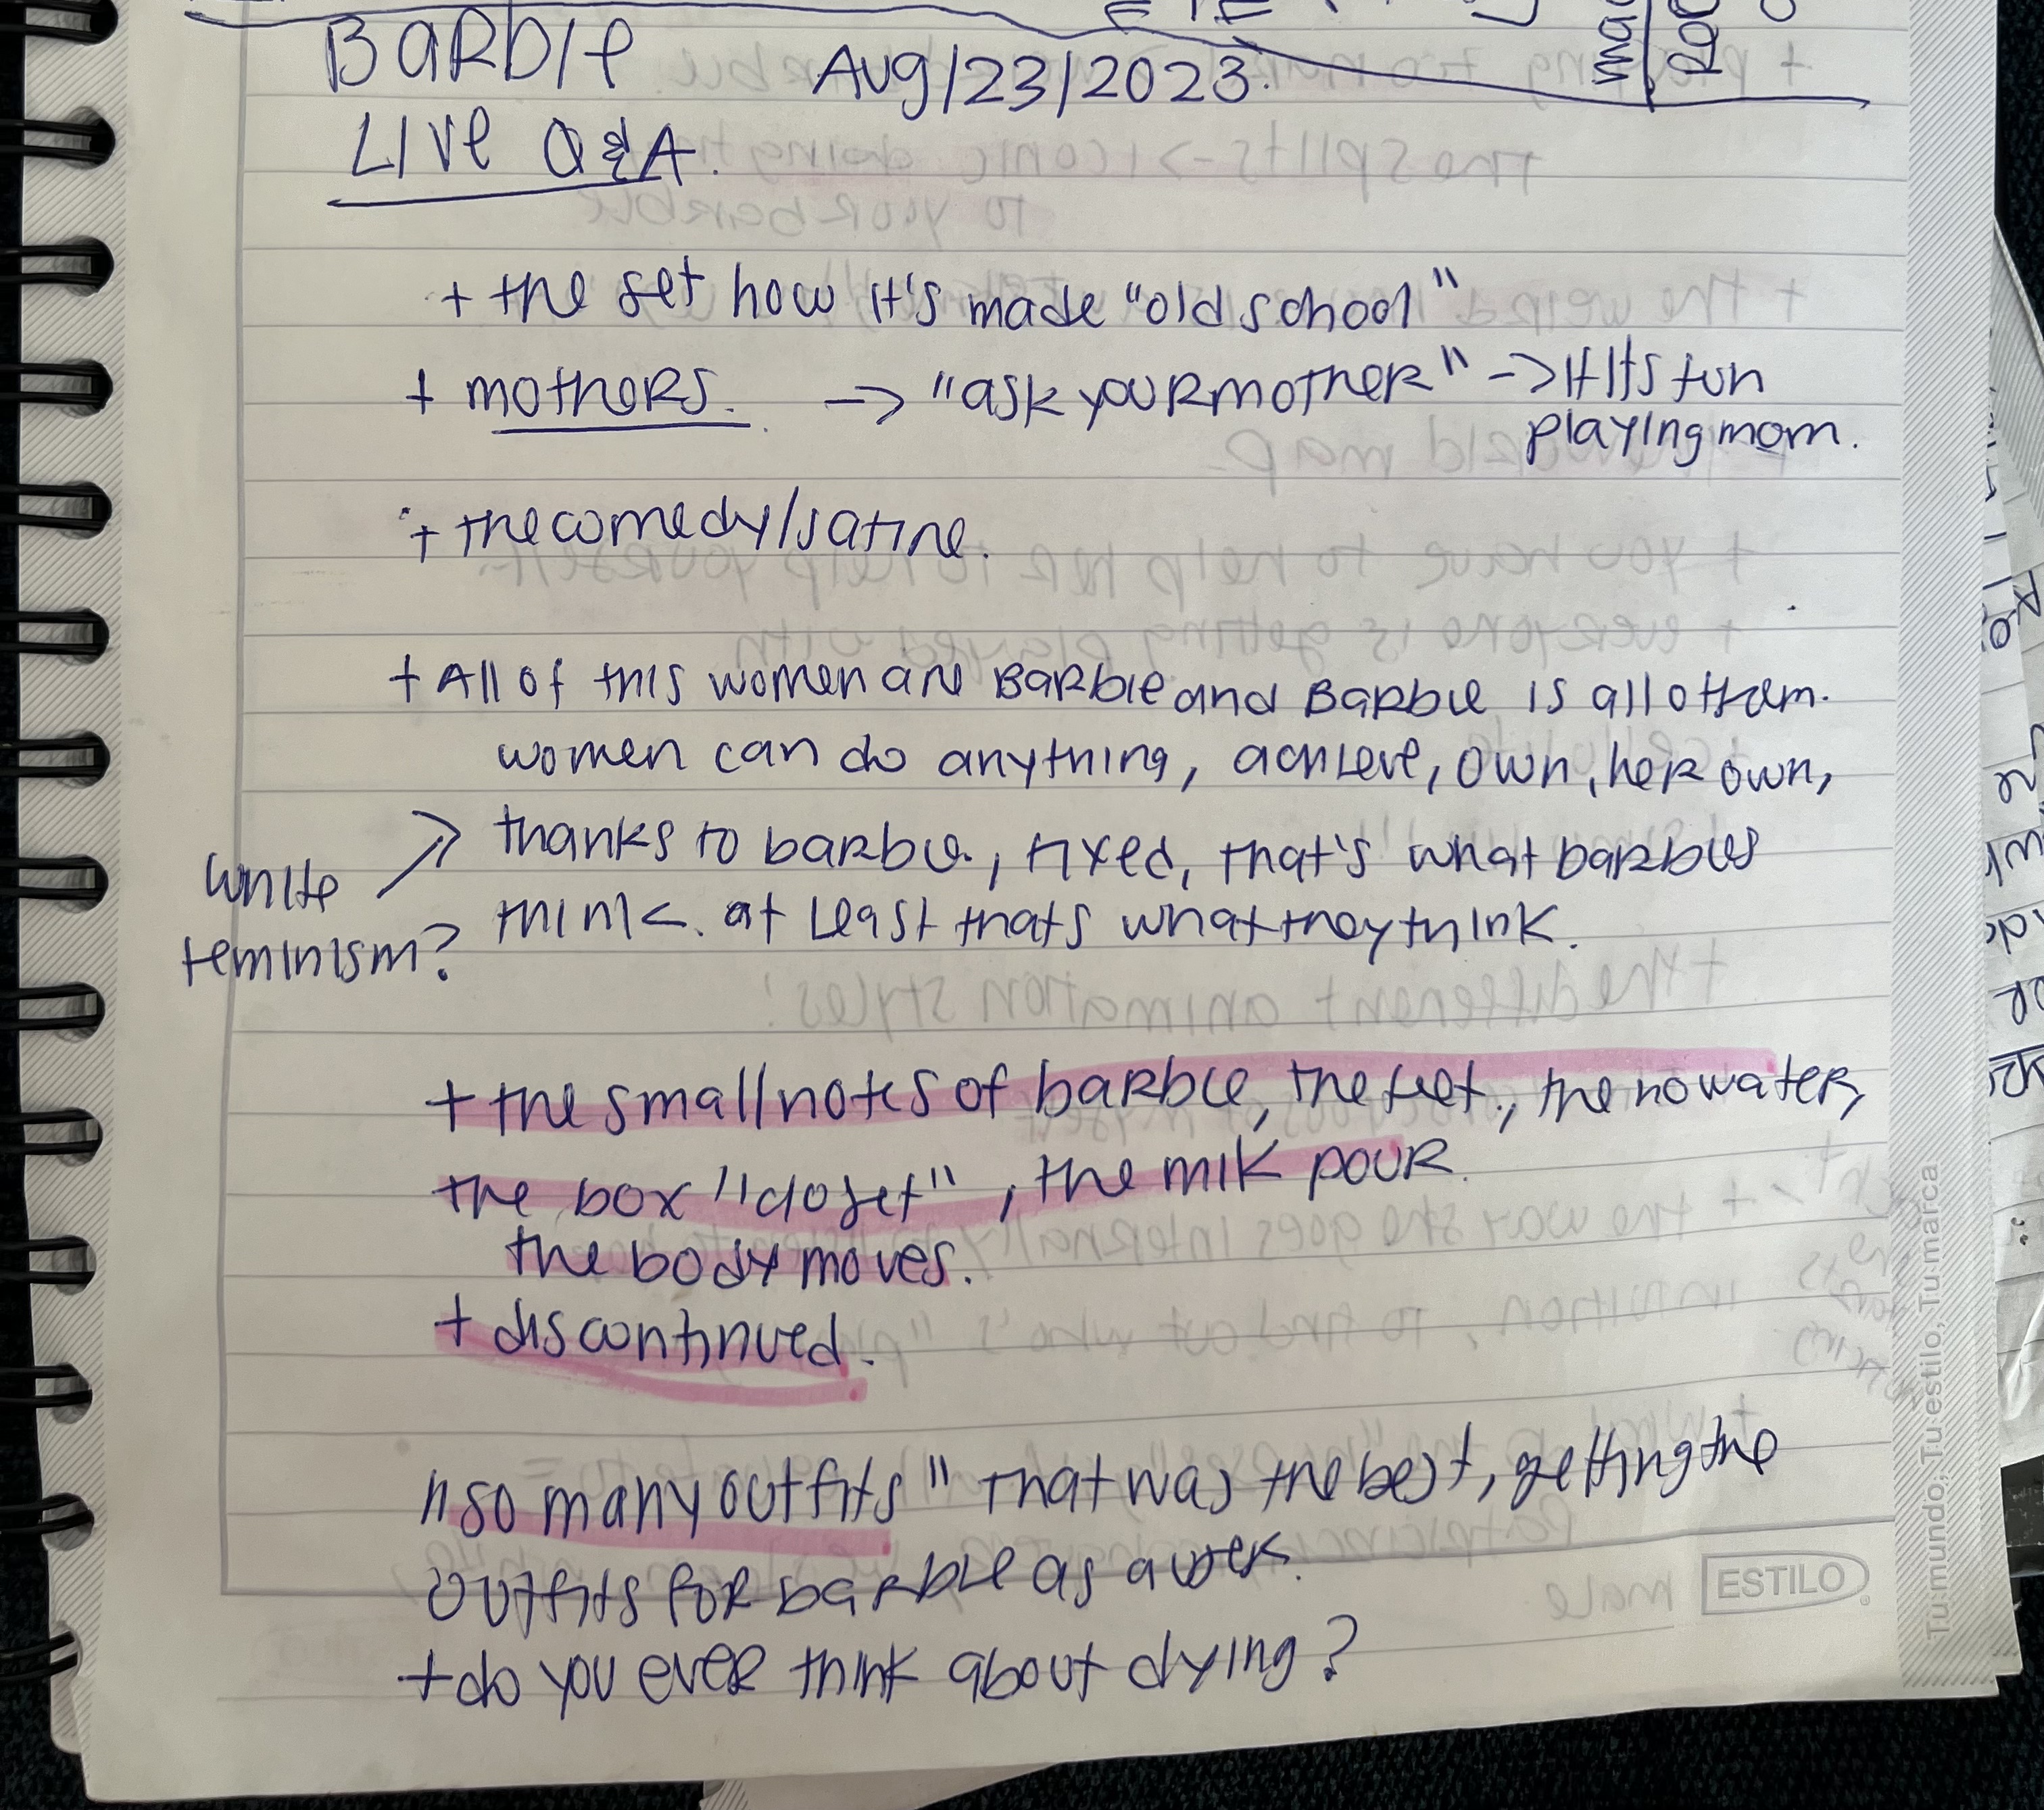 BARBIE Aug/23/2023.
LIVE Q&A.
+ the set how it's made "old school"
+ mothers. -> "ask your mother" -> It its fun
playing mom.
+ the comedy/satire.
+ All of this women are Barbie and Barbie is all othem.
women can do anything, achieve, own, her own,
thanks to barbie, fixed, that's what barbies
white
think. at least thats what they think.
feminism?
+ the small notes of barbie, the feet, the no water,
the box "closet", the milk pour.
the body moves.
+ discontinued.
"so many outfits" That was the best, getting the
outfits for barbie as a
+ do you ever think about dying?
ESTILO
Tu mundo, Tu estilo, Tu marca